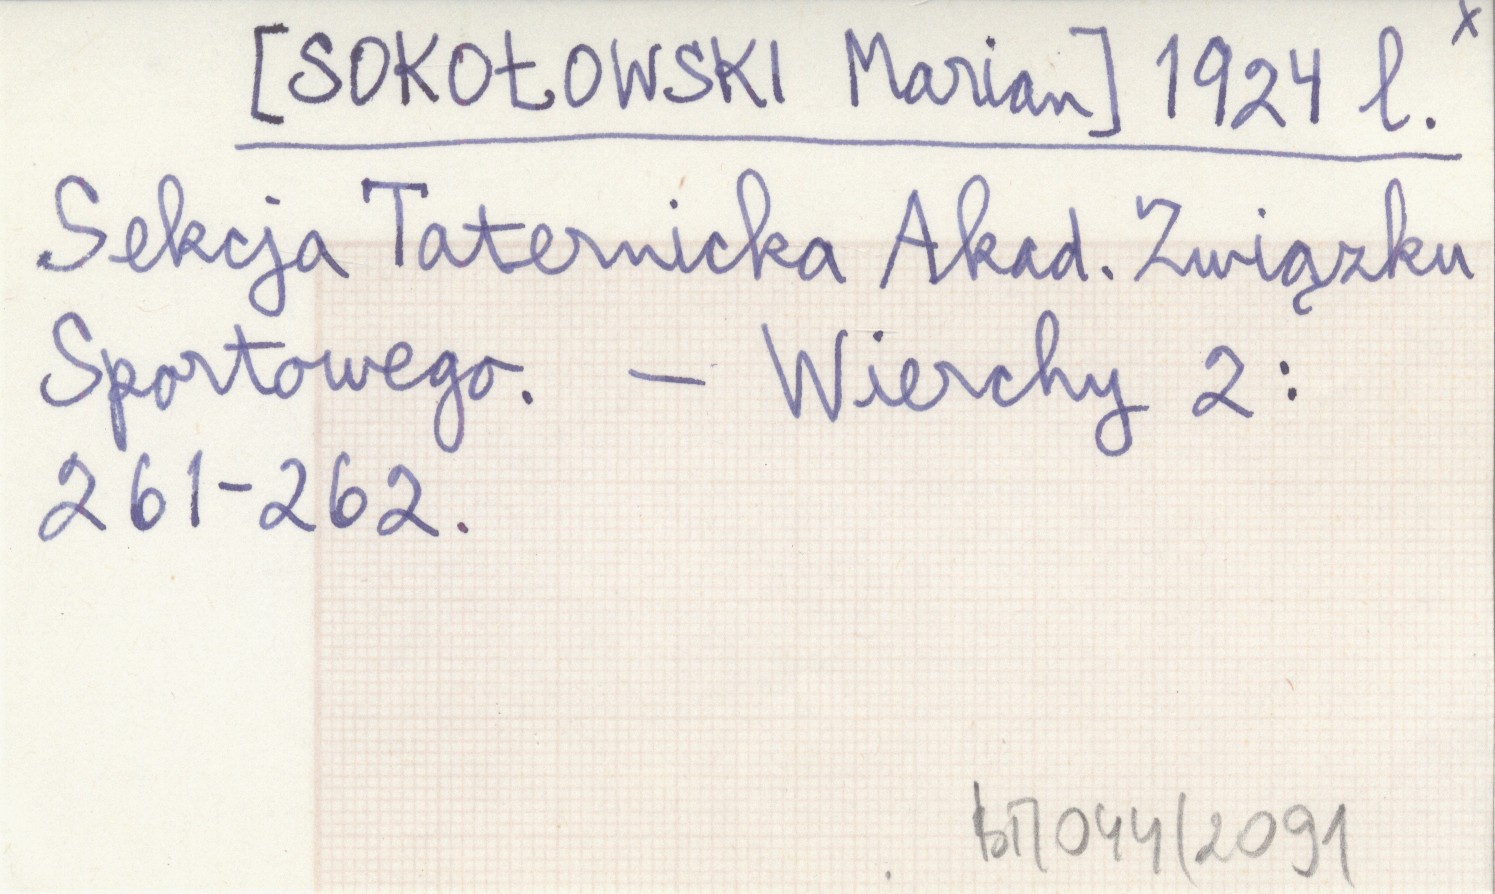 [SOKOŁOWSKI Marian] 1924 l. x
Sekcja Taternicka Akad. Związku
Sportowego. — Wierchy 2:
261-262.
044/2091